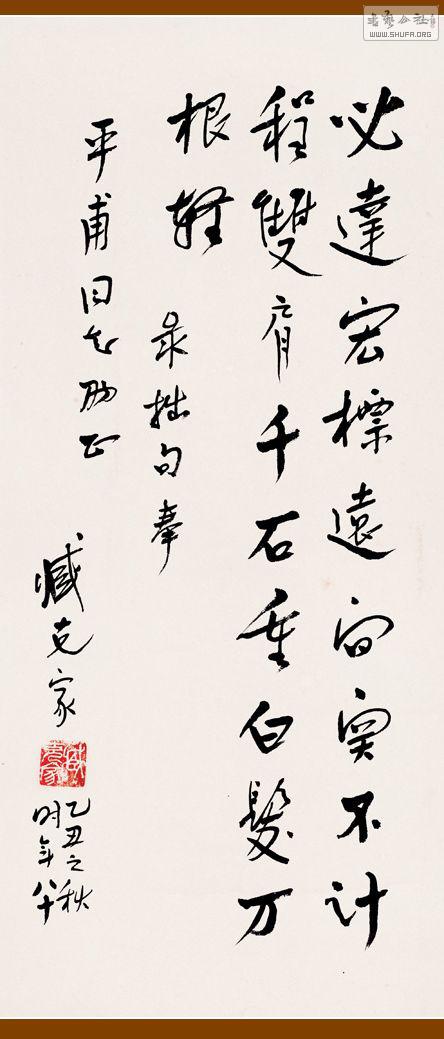 必達宏標遠不计
程雙肩千石重白髮万
根輕
录拙句奉
平甫同志正
臧克家
臧克家
乙丑之秋
时年八十
书艺公社
WWW.SHUFA.ORG